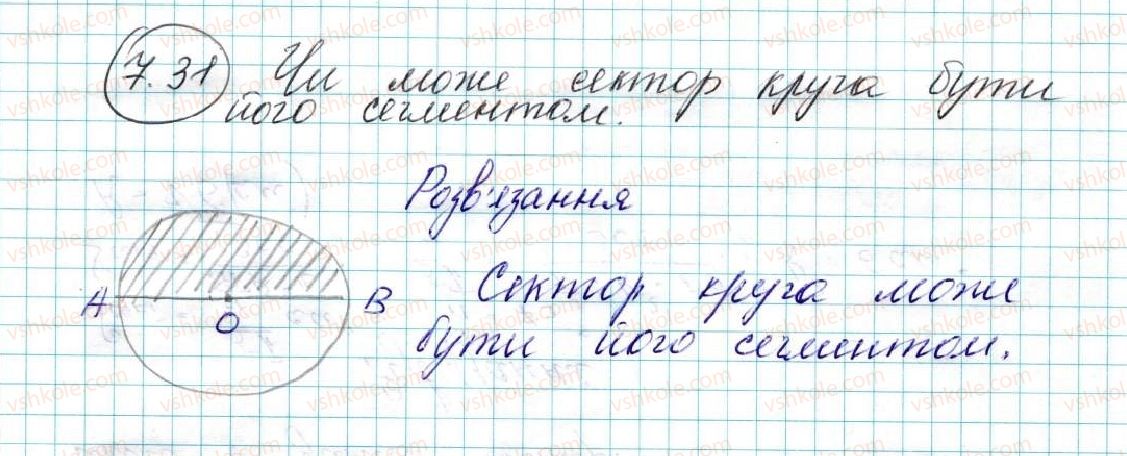 7.31 Чи може сектор круга бути
його сегментом.
Розв'язання
A O B
Сектор круга може
бути його сегментом.
vshkole.com